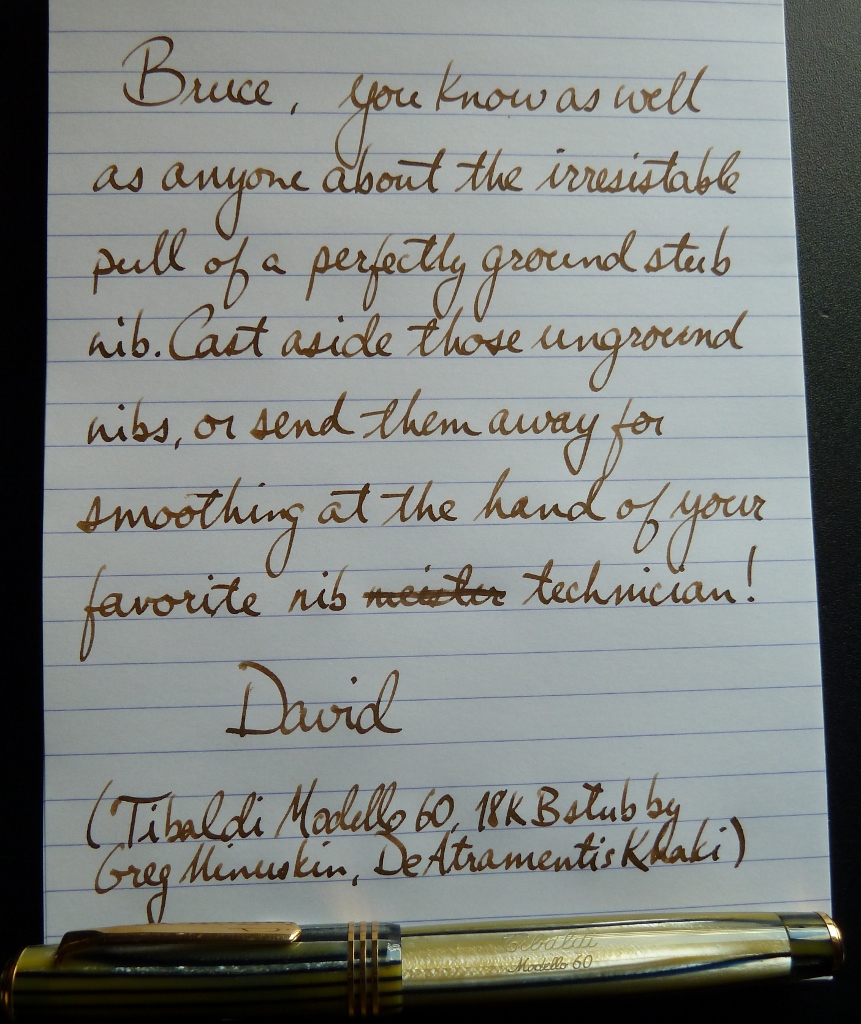 Bruce, you know as well
as anyone about the irresistable
pull of a perfectly ground stub
nib. Cast aside those unground
nibs, or send them away for
smoothing at the hand of your
favorite nib meister technician!
David
(Tibaldi Modello 60, 18K B stub by
Greg Minuskin, DeAtramentis Khaki)
Tibaldi
Modello 60